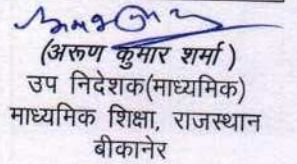 (अरुण कुमार शर्मा)
उप निदेशक(माध्यमिक)
माध्यमिक शिक्षा, राजस्थान
बीकानेर